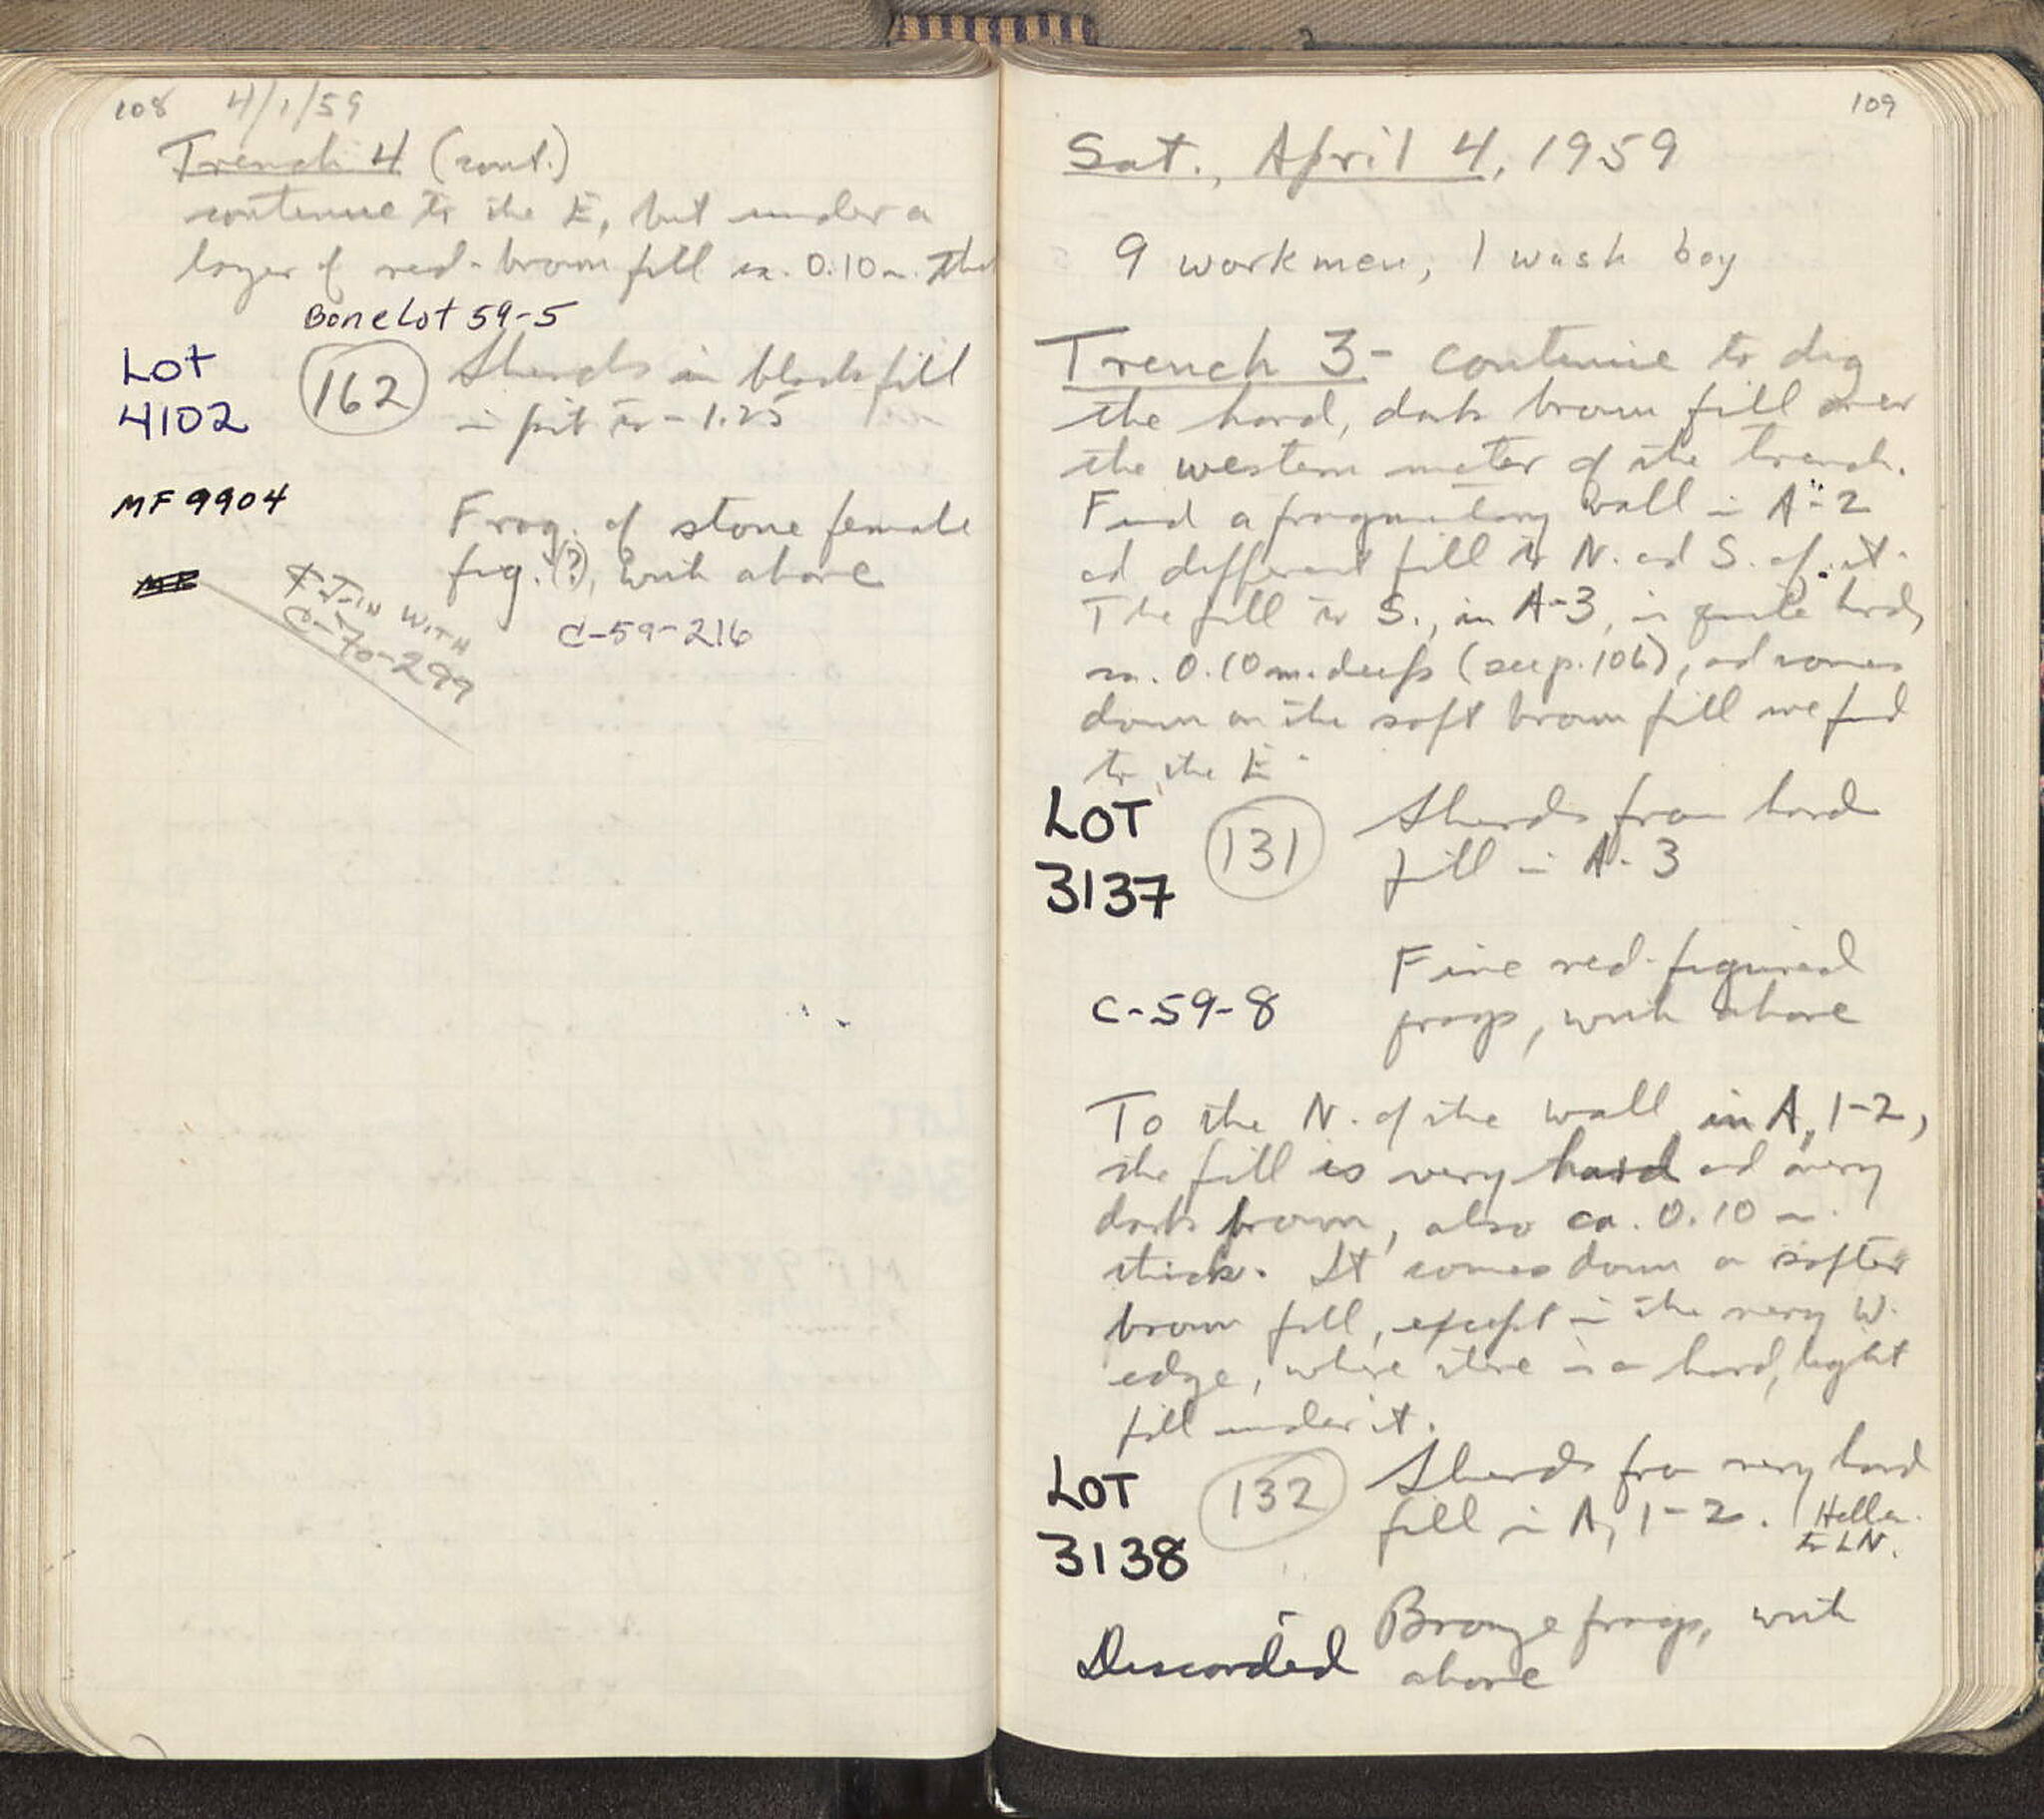 108 4/1/59
Trench 4 (cont.)
continue to the E, but under a
layer of red-brown fill ca. 0.10 m. thick
Bone Lot 59-5
Lot
4102
162
Sherds in black fill
in pit to -1.25
MF 9904
Frag. of stone female
fig.(?), with above
C-59-216
JOIN WITH
C-70-299
109
Sat., April 4, 1959
9 workmen, 1 wash boy
Trench 3 - continue to dig
the hard, dark brown fill over
the western meter of the trench.
Find a fragmentary wall in A-2
and different fill to N. and S. of it.
The fill to S., in A-3, is quite hard,
ca. 0.10 m. deep (see p. 106), and comes
down on the soft brown fill we find
to the E.
LOT
3137
131
Sherds from hard
fill in A-3
C-59-8
Fine red-figured
frags, with above
To the N. of the wall, in A, 1-2,
the fill is very hard and very
dark brown, also ca. 0.10 m.
thick. It comes down on softer
brown fill, except in the very W.
edge, where there is a hard, light
fill under it.
LOT
3138
132
Sherds from very hard
fill in A, 1-2. Hellen.
to LN.
Discarded
Bronze frags, with
above